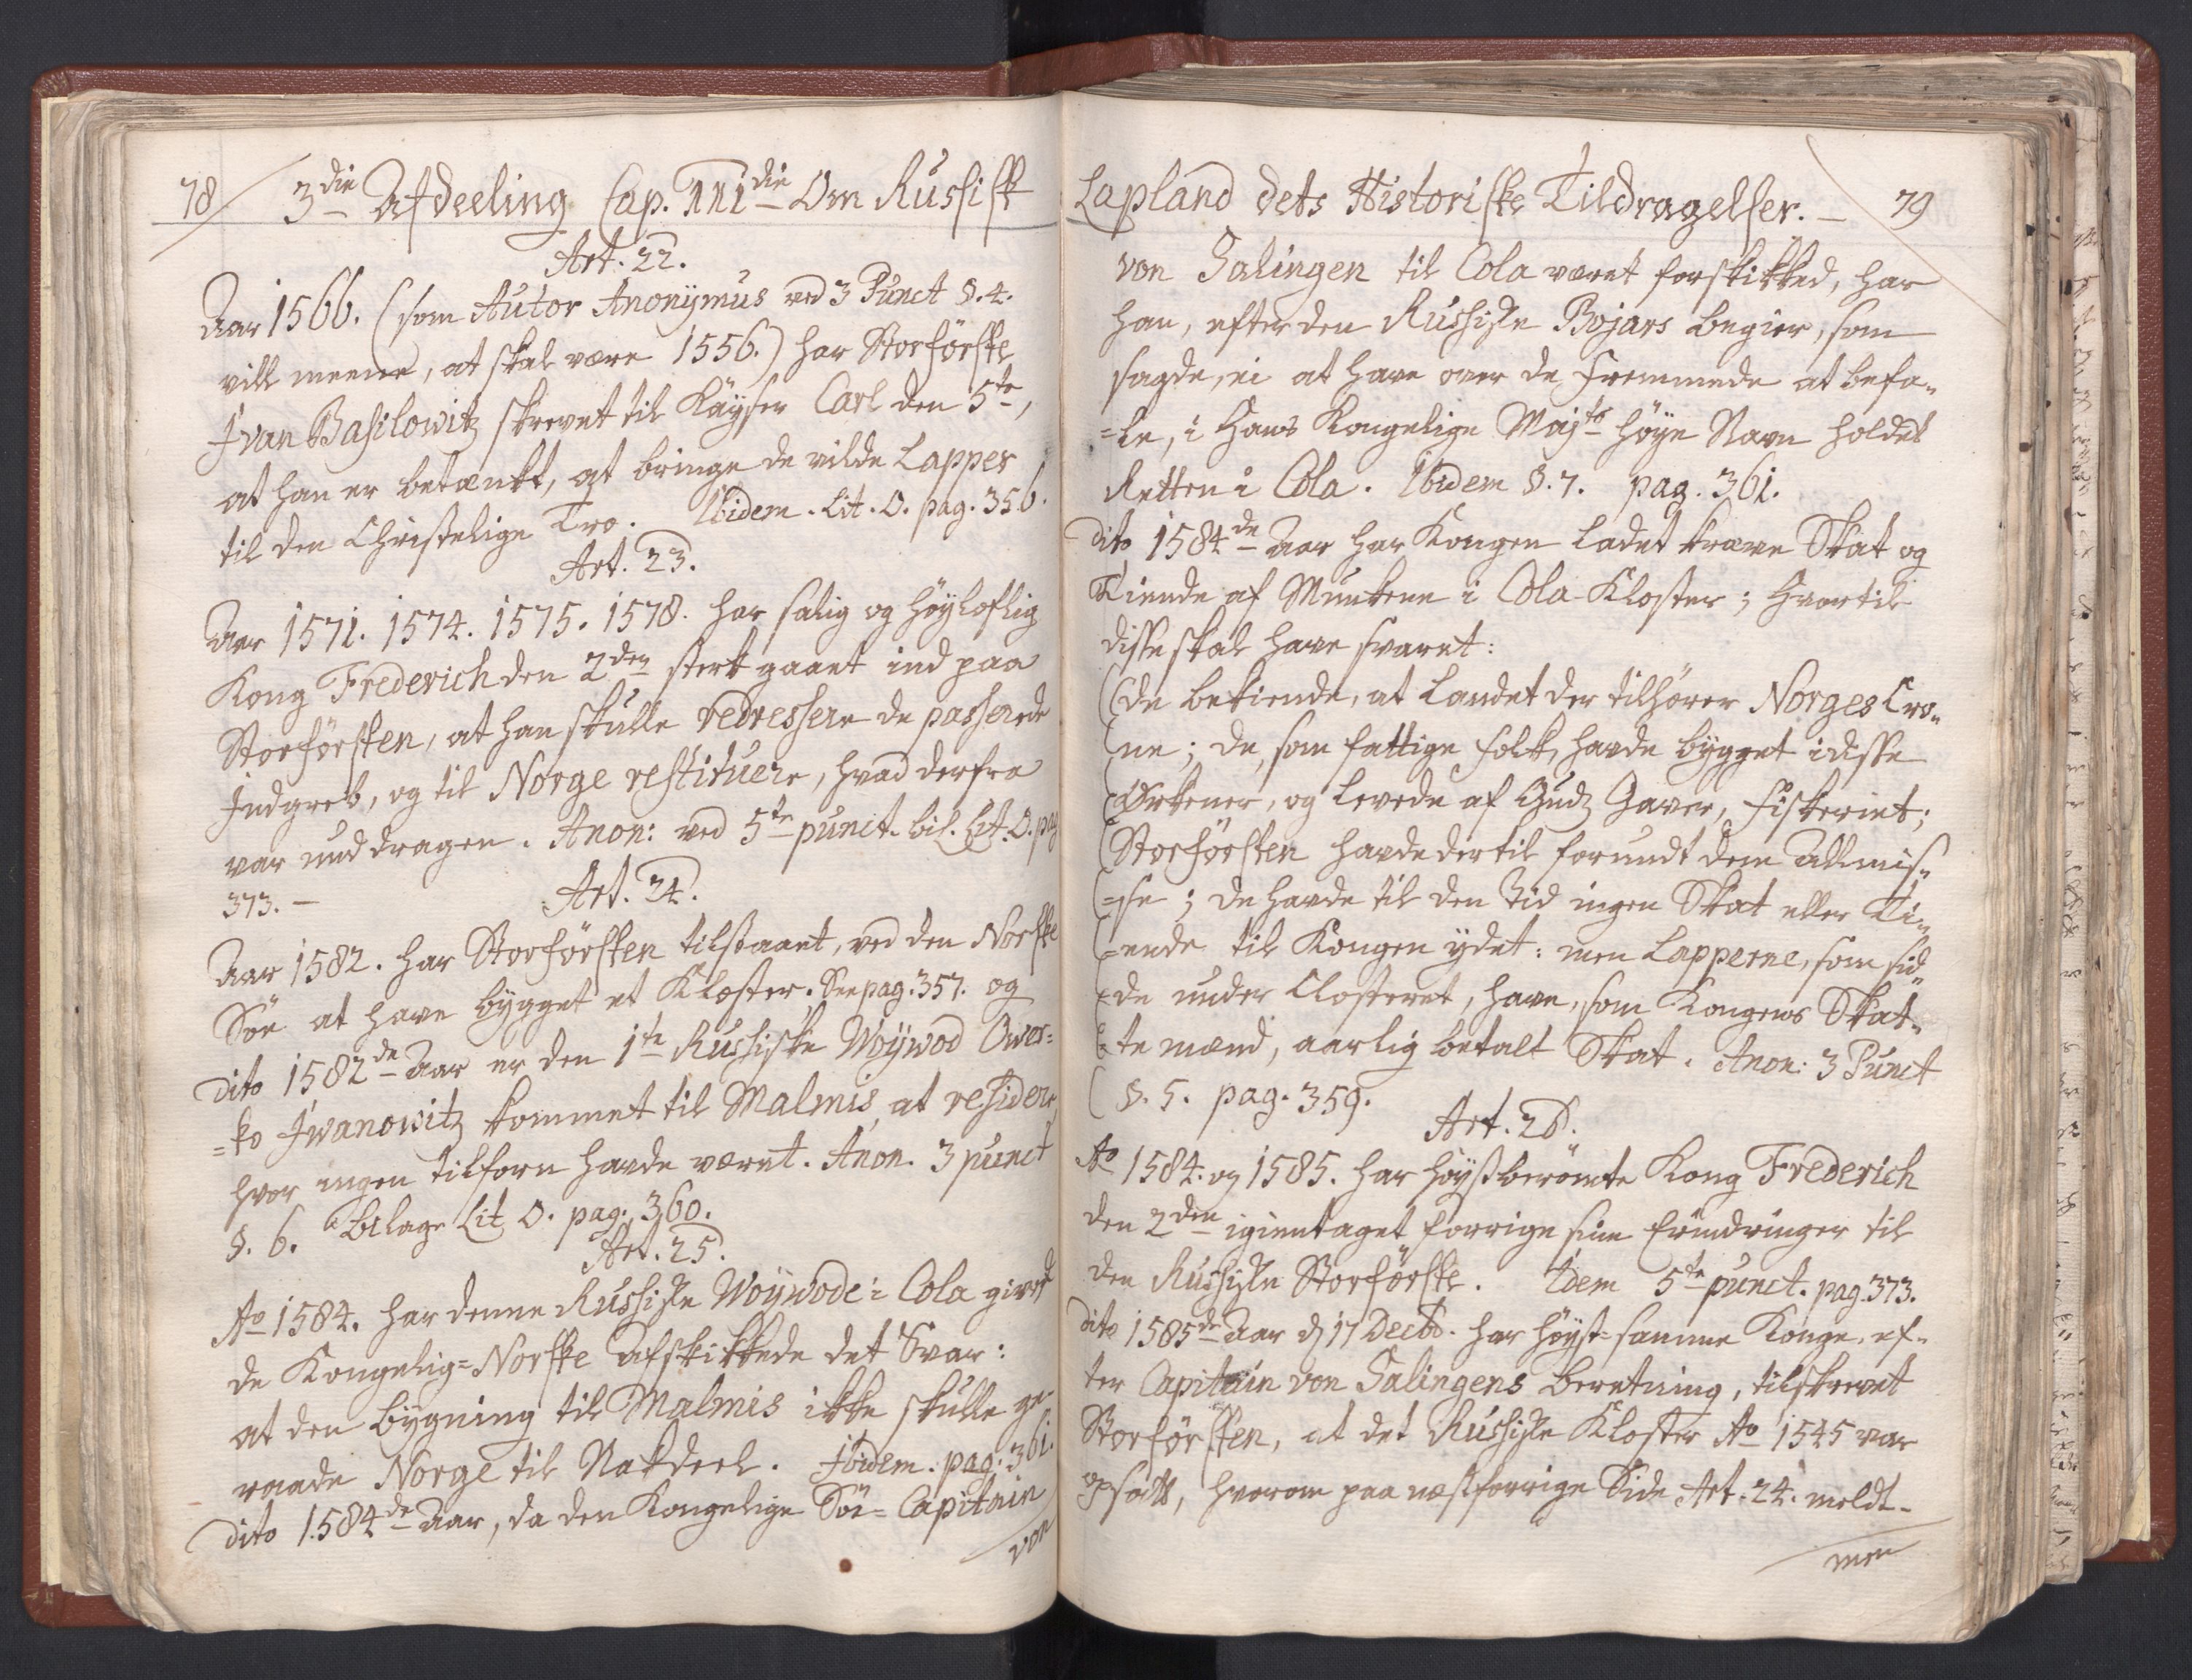 78 3die Afdeeling Cap. III die Om Russisk
Art. 22.
Aar 1566. (som Autor Anonÿmus ved 3 Punct §. 4.
vill meene, at skal være 1556.) har Storförste
Ivan Basilowitz skrevet til Käÿser Carl den 5te,
at han er betænkt, at bringe de vilde Lapper
til den Christelige Tro. Ibidem. Lit. O. pag. 356.
Art. 23.
Aar 1571. 1574. 1575. 1578. har salig og höÿloflig
Kong Frederich den 2den sterk gaaet ind paa
Storförsten, at han skulle redressere de passerede
Indgreb, og til Norge restituere, hvad derfra
var unddragen. Anon: ved 5te punct. bil. Lit. O. pag
373. —
Art. 24.
Aar 1582. har Storförsten tilstaaet, ved den Norske
Söe at have bÿgget et Kloster. See pag. 357. og
dito 1582de Aar er den 1te Russiske Woÿwod Owes=
=ko Iwanowitz kommet til Malmis, at residere,
hvor ingen tilforn havde været. Anon. 3 punct
§. 6. Bilage Lit O. pag. 360.
Art. 25.
Ao 1584. har denne Russiske Woÿwode i Cola gived
de Kongelig=Norske Afskikkede det Svar:
at den bÿgning til Malmis ikke skulle ge-
raade Norge til Nakdeel. Ibidem. pag. 361.
dito 1584de Aar, da den Kongelige Söe=Capitain
von
Lapland dets Historiske Tildragelser. — 79
von Salingen til Cola været forskikked, har
han, efter den Russiske Bojars begier, som
sagde, ei at have over de fremmede at befa=
=le, i Hans Kongelige Majts höÿe Navn holdet
Retten i Cola. Ibidem §. 7. pag. 361.
dito 1584de Aar har Kongen ladet kræve Skat og
Tiende af Munkene i Cola-Kloster; Hvortil
disse skal have svaret:
((de bekiende, at Landet der tilhører Norges Cro=
(ne; de, som fattige folk, havde bÿgget i disse
(Ørkener, og levede af Gudz Gaver, fiskeriet;
(Storförsten havde dertil forundt dem Allmis=
(=se; de havde til den Tid ingen Skat eller Ti=
(=ende til Kongen ÿdet: men Lapperne, som sid
(de under Closteret, have, som Kongens Skat=
(te mænd, aarlig betalt Skat. Anon: 3 Punct
( §. 5. pag. 359.
Art. 26.
Ao 1584. og 1585. har höÿstberömte Kong Frederich
den 2den igientaget forrige sine Erindringer til
den Russiske Storförste. Idem 5te punct. pag. 373.
dito 1585de Aar d 17 Decbr. har höÿst=samme Konge, ef=
ter Capitain von Salingens beretning, tilskrevet
Storförsten, at det Russiske Kloster Ao 1545 var
opsatt, hvorom paa næstforrige Side Art. 24. meldt.
men